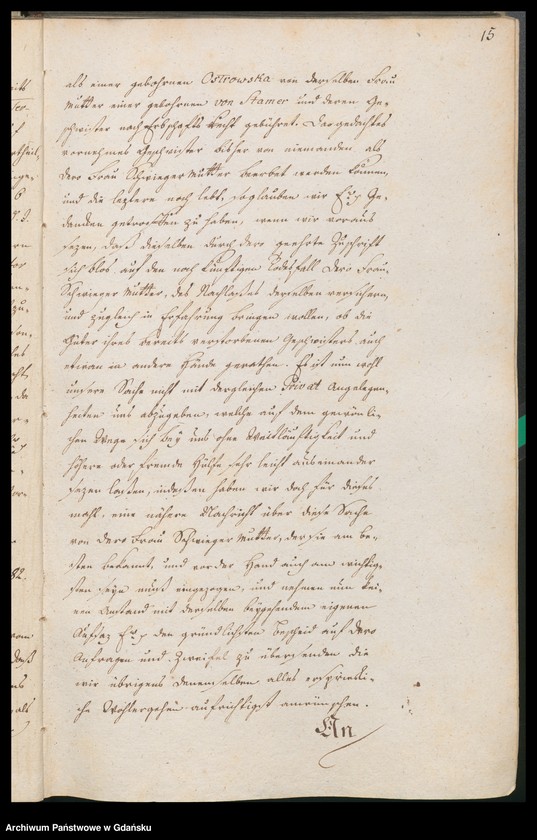 15
als einer gebohrnen Ostrowska von derselben Frau
Mutter einer gebohrnen von Stamer und deren Ge-
schwister nach Erbschafts Recht gebühret. Da gedachtes
vornehmes Geschwister bisher von niemanden als
dero Frau Schwieger Mutter beerbet werden können,
und die leztere noch lebt, so glauben wir Ew. Ge-
danken getroffen zu haben, wenn wir voraus
sezen, daß dieselben durch dero geehrte Zuschrift
sich blos auf den noch künftigen Todesfall dero Frau
Schwieger Mutter, des Nachlaßes derselben versichern,
und zugleich in Erfahrung bringen wollen, ob die
Güter ihres bereits verstorbenen Geschwisters auch
etwan in andere Hände gerathen. Es ist nun wohl
unsere Sache nicht mit dergleichen Privat Angelegen-
heiten uns abzugeben, welche auf dem gewöhnli-
chen Wege sich bey uns ohne Weitläuftigkeit und
höhere oder fremde Hülfe sehr leicht auseinander
sezen laßen, indeßen haben wir doch für dieses
mahl eine nähere Nachricht über diese Sache
von dero Frau Schwieger Mutter, der sie am be-
sten bekannt, und vor der Hand auch am wichtig-
sten seyn muß eingezogen, und nehmen nun kei-
nen Anstand mit derselben beygehendem eigenen
Aufsaz Ew. den gründlichsten Bescheid auf dero
Anfragen und Zweifel zu übersenden die
wir übrigens denenselben alles ersprießli-
che Wohlergehen aufrichtigst anwünschen.
An
82.
Archiwum Państwowe w Gdańsku